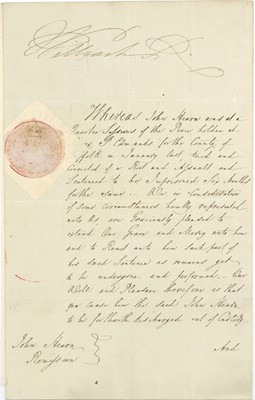 Whereas John Hearn was at a
Quarter Sessions of the Peace holden at
St Edmunds for the County of
Suffolk in January last tried and
convicted of a Riot and Assault and
Sentenced to be imprisoned Six Months
for the same — We in Consideration
of some circumstances humbly represented
unto Us are Graciously pleased to
extend Our Grace and Mercy unto him
and to Remit unto him such part of
his said Sentence as remains yet
to be undergone and performed — Our
Will and Pleasure therefore is that
you cause him the said John Hearn
to be forthwith discharged out of Custody.
And
John Hearn
Remission